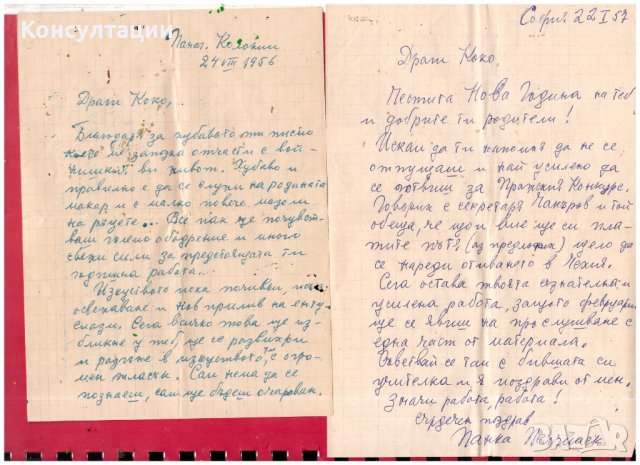 Консултации
Панаг. Колонии
24 VIII 1956
Драги Коко,
Благодаря за хубавото ти писмо
което ме запозна отчасти с вой-
нишкия ви живот. Хубаво и
правилно е да се служи на родината
макар и с малко повече мазоли
на ръцете... Все пак ще почувст-
ваш голямо ободрение и много
свежи сили за предстоящата ти
годишна работа.
Изкуството иска почивки,
освежаване и нов прилив на енту-
сиазъм. Сега всичко това ще из-
бликне у теб, ще се развихри
и разпуже в изкуството, с огро-
мен тласък. Сам няма да се
познаеш, сам ще бъдеш очарован.
София 22 I 57
Драги Коко,
Честита Нова Година на теб
и добрите ти родители!
Искам да ти напомня да не се
отпущаш и най усилено да
се готвиш за Пражкия Конкурс.
Говорих с секретаря Чакъров и той
обеща, че щом вие ще си пла-
тите пътя (аз предложих) щело да
се нареди отиването в Чехия.
Сега остава твоята съзнателна и
усилена работа, защото февруари
ще се явиш на прослушване с
една част от материала.
Съветвай се там с бившата си
учителка и я поздрави от мен.
Значи работа, работа!
Сърдечен поздрав
Панка Пелишек
BAZAR